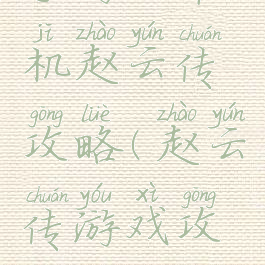 jī zhào yún chuán
机赵云传
gōng lüè zhào yún
攻略(赵云
chuán yóu xì gōng
传游戏攻